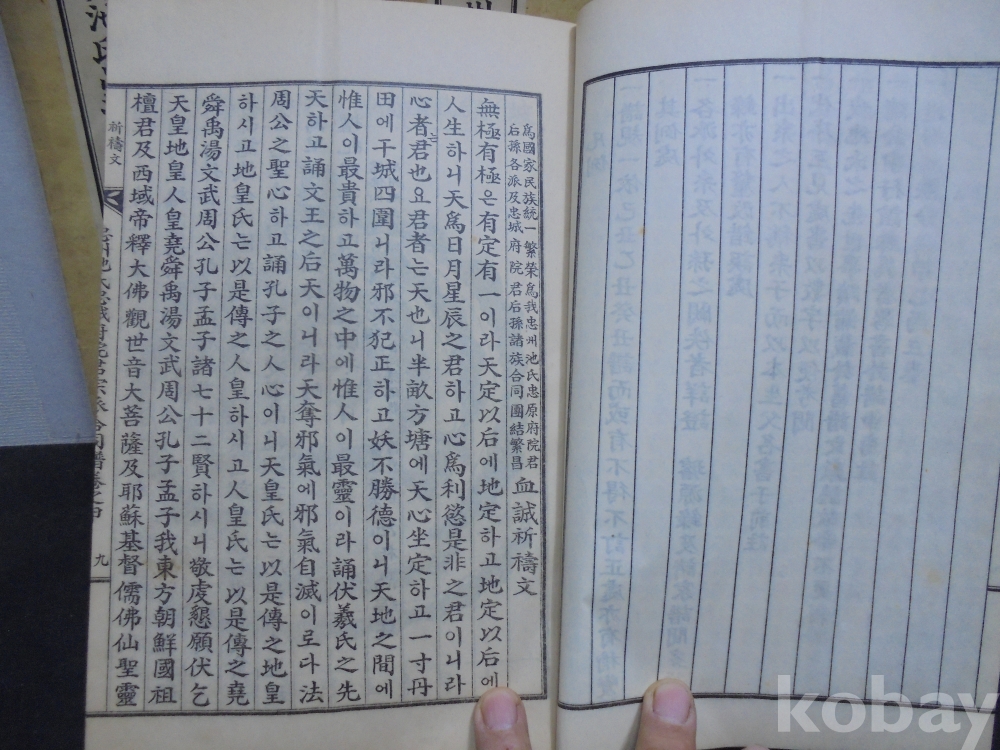 爲國家民族統一繁榮爲我忠州池氏忠原府院君
后孫各派及忠城府院君后孫諸族合同團結繁昌
血誠祈禱文
無極有極은有定有一이라天定以后에地定하고地定以后에
人生하니天爲日月星辰之君하고心爲利慾是非之君이니라
心者君也요君者는天也니半畝方塘에天心坐定하고一寸丹
田에干城四圍니라邪不犯正하고妖不勝德이니天地之間에
惟人이最貴하고萬物之中에惟人이最靈이라誦伏羲氏之先
天하고誦文王之后天이니라天奪邪氣에邪氣自滅이로다法
周公之聖心하고誦孔子之人心이니天皇氏는以是傳之地皇
하시고地皇氏는以是傳之人皇하시고人皇氏는以是傳之堯
舜禹湯文武周公孔子孟子諸七十二賢하시니敬虔懇願伏乞
天皇地皇人皇堯舜禹湯文武周公孔子孟子我東方朝鮮國祖
檀君及西域帝釋大佛觀世音大菩薩及耶蘇基督儒佛仙聖靈
祈禱文
忠州池氏忠城府院君宗派合同譜卷之四
九
kobay